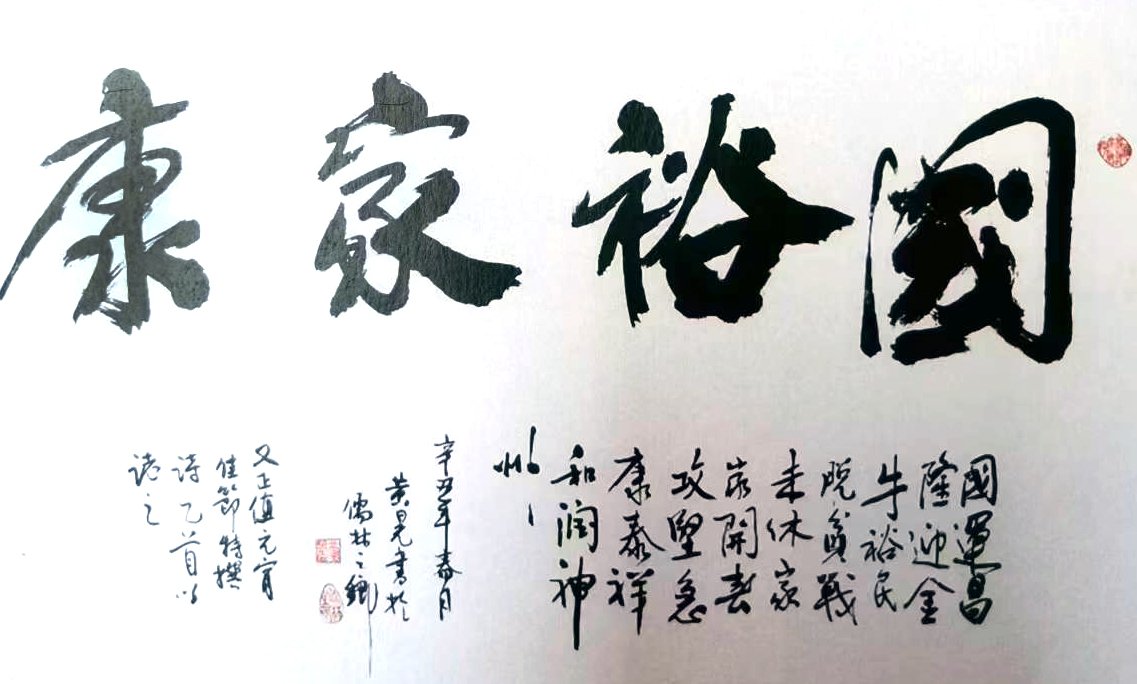 國裕家康
國運昌
隆迎金
牛裕民
脱貧戰
未休家
開春
攻堅急
康泰祥
和潤神
州
辛丑年春月
黄晃書於
儒林之鄉
又正值元宵
佳節特撰
詩乙首以
誌之